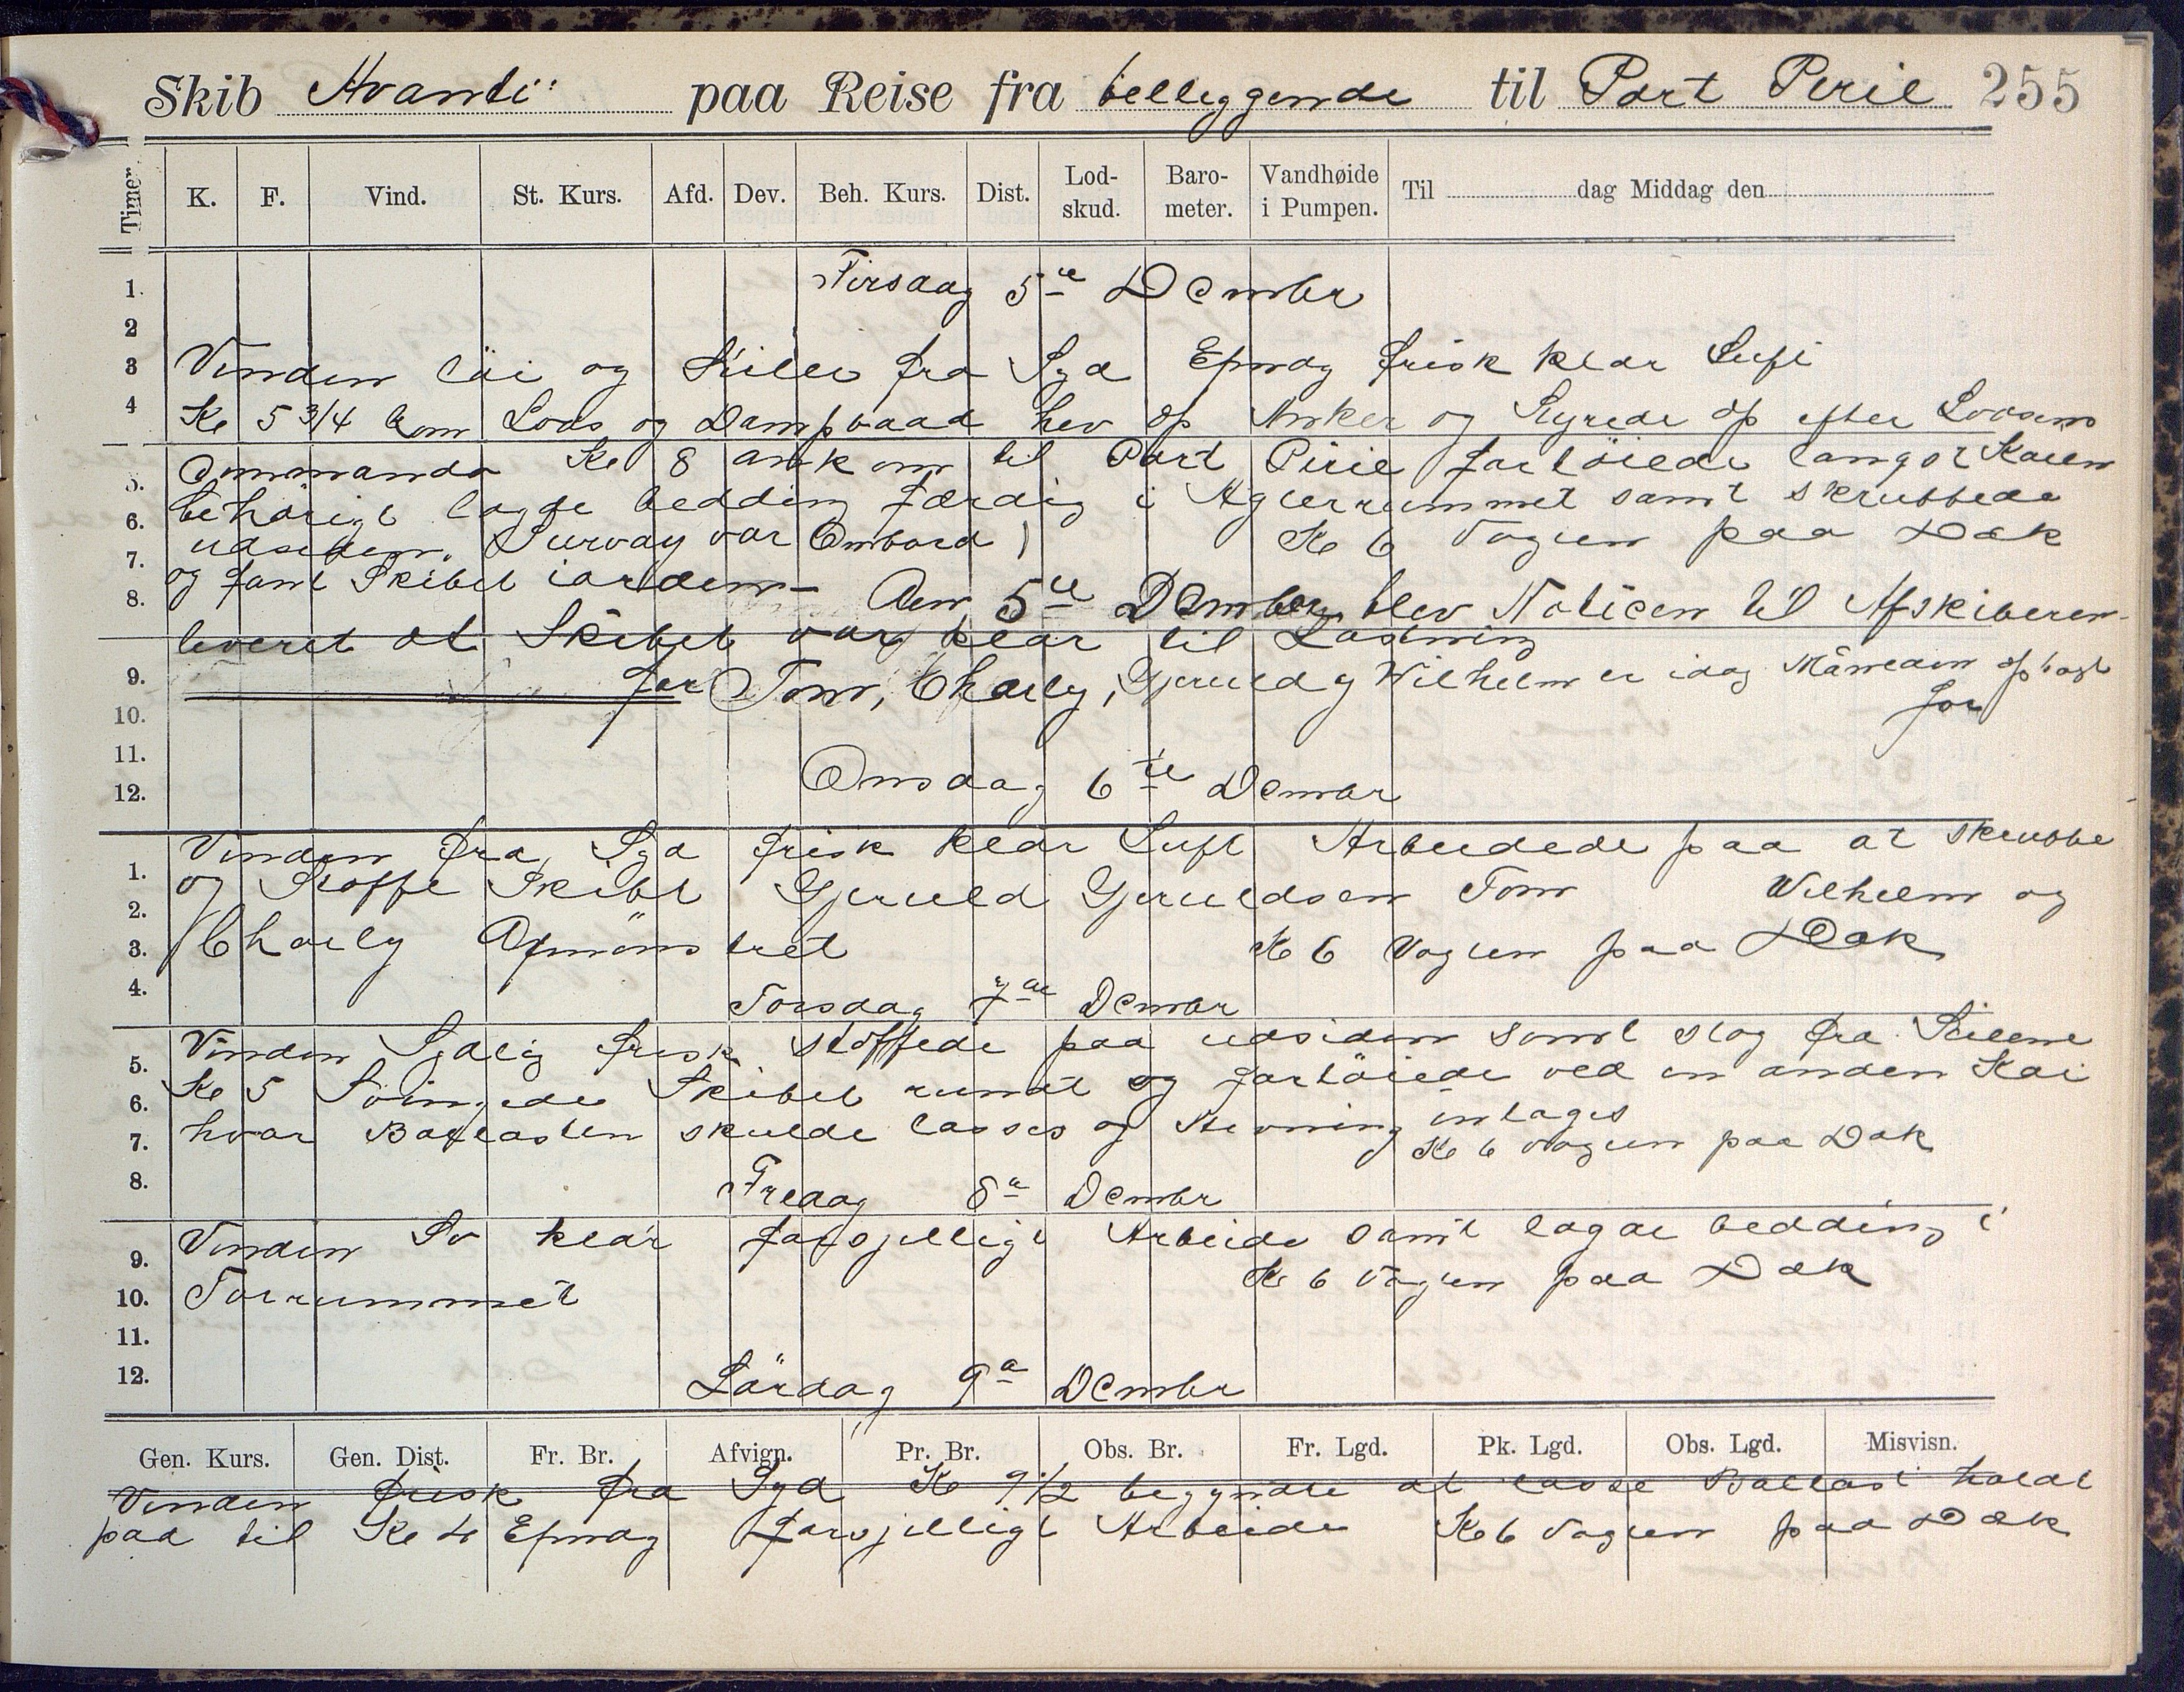 Skib Avanti paa Reise fra belleggende til Port Perie 255
Timer. K. F. Vind. St. Kurs. Afd. Dev. Beh. Kurs. Dist. Lod-skud. Baro-meter. Vandhøide i Pumpen. Til dag Middag den
1. Tirsdag 5te Dcmbr
2
3 Vinden löi og Stille fra Syd Efmdg frisk klar Luft
4 Kl 5 3/4 kom Lods og Dampbaad hev op Anker og Styrede op efter Lodsens
5. Commando Kl 8 ankom til Port Pirie fortöiede langs Kaien
6. behörigt lagde bedding færdig i Agterrummet samt skrubbede
7. udsiden. Survay var Ombord Kl 6 Vagten paa Dæk
og fant Skibet iorden—
8. Den 5te Dcmber blev Noticen til Afskiberen
leveret at Skibet var klar til Lastning
9. for Tom, Charly, Gjeruld og Wilhelm er idag Måneden opbragt
10. for
11.
12. Onsdag 6te Dcmbr
Vinden fra Syd frisk klar Luft Arbeidede paa at skrubbe
1. og Stoffe Skibt Gjeruld Gjeruldsen Tom Wilhelm og
2.
3. Charly Afmönstret Kl 6 Vagten paa Dæk
4. Torsdag 7de Dcmbr
5. Vinden Sydlig frisk stoffede paa udsiden samt slog fra Seilene
6. Kl 5 Svingede Skibet rundt og fortöiede ved en anden Kai
7. hvor Ballasten skulde lasses og Stevning intages
Kl 6 Vagten paa Dæk
8. Fredag 8de Dcmbr
9. Vinden Sv klar forsjelligt Arbeide samt lagde bedding i
10. Forrummet Kl 6 Vagten paa Dæk
11.
12. Lördag 9de Dcmbr
Gen. Kurs. Gen. Dist. Fr. Br. Afvign. Pr. Br. Obs. Br. Fr. Lgd. Pk. Lgd. Obs. Lgd. Misvisn.
Vinden frisk fra Syd Kl 9 1/2 begyndte at lasse Ballast holdt
paa til Kl 4 Efmdg forsjelligt Arbeide Kl 6 Vagten paa Dæk